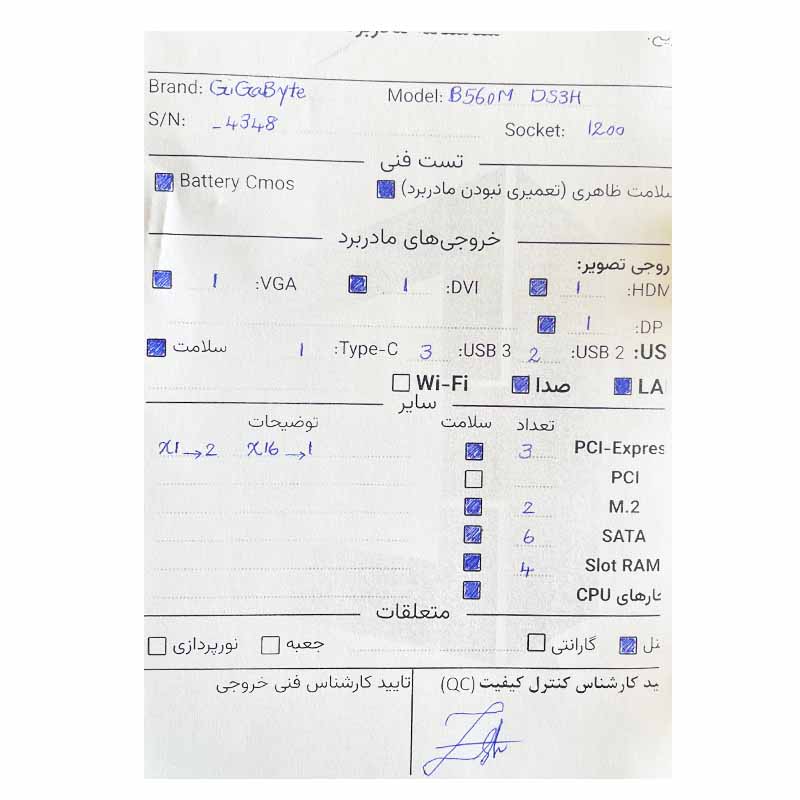 Brand: GiGaByte Model: B560M DS3H
S/N: _4348 Socket: 1200
تست فنی
سلامت ظاهری (تعمیری نبودن مادربرد) Battery Cmos
خروجی‌های مادربرد
روجی تصویر:
:HDM 1 :DVI 1 :VGA 1
:DP 1
:US :USB 2 2 :USB 3 3 :Type-C 1 سلامت
LA صدا Wi-Fi
سایر
تعداد سلامت توضیحات
PCI-Expres 3 x16 → 1 x1 → 2
PCI
M.2 2
SATA 6
Slot RAM 4
CPU
متعلقات
گارانتی جعبه نورپردازی
ید کارشناس کنترل کیفیت (QC) تایید کارشناس فنی خروجی